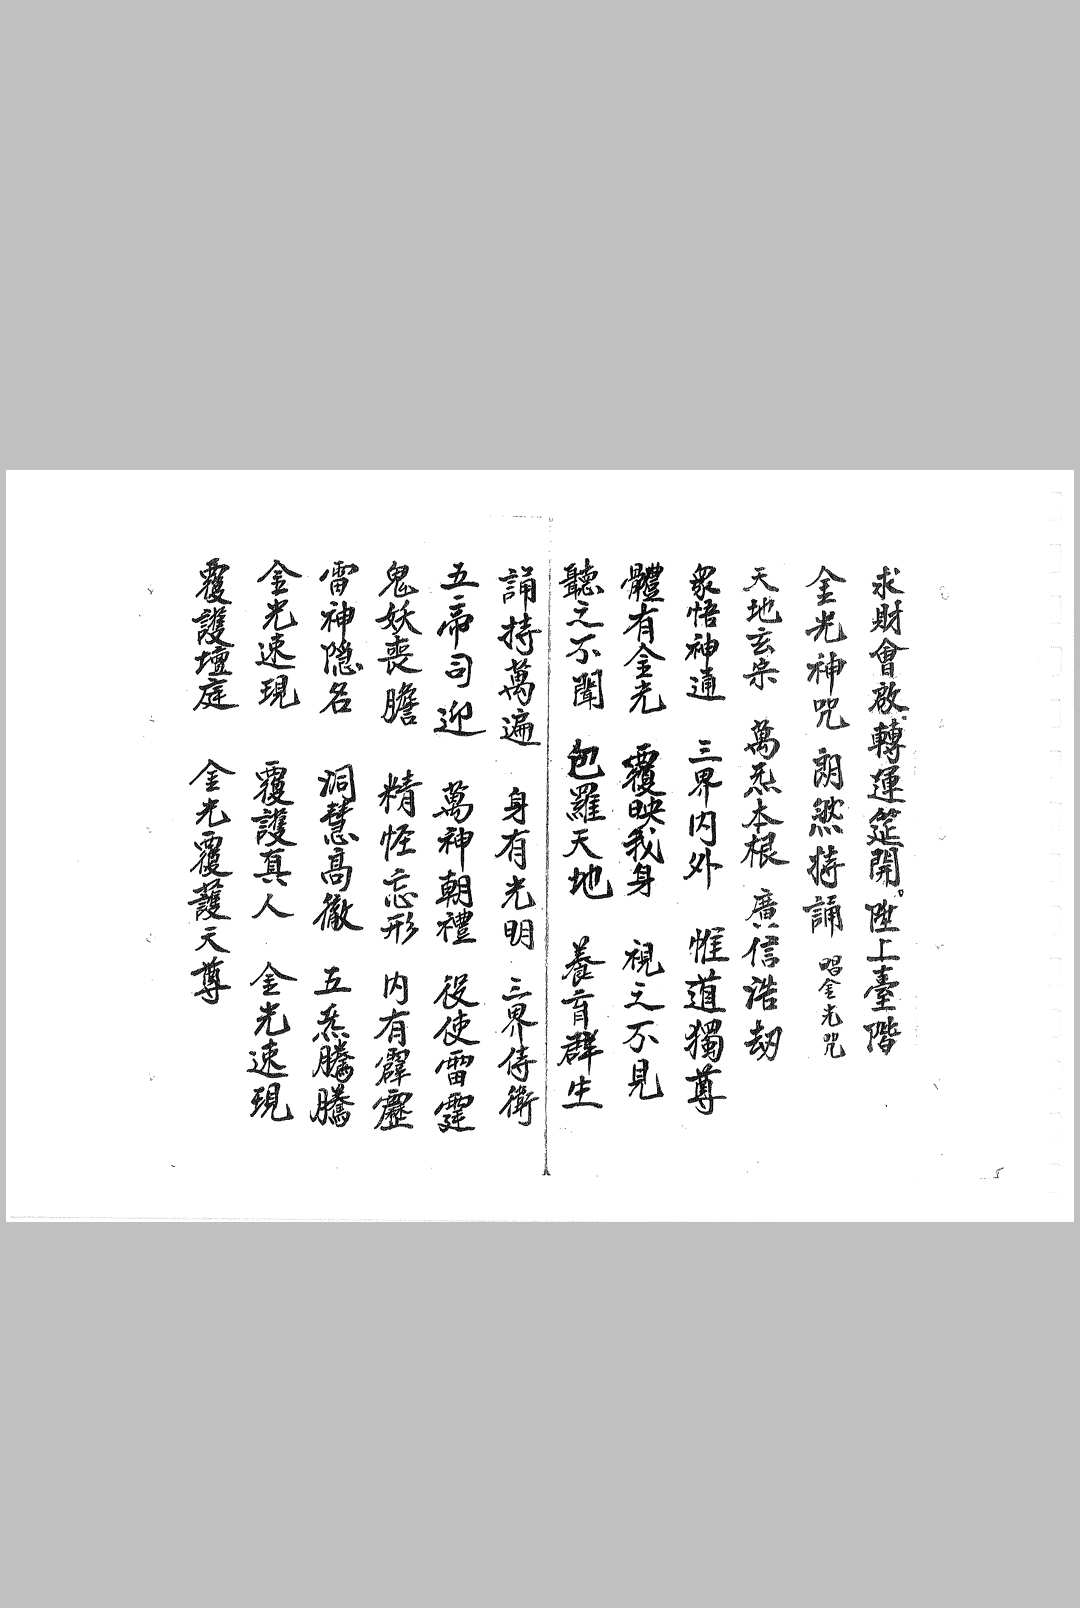 求財會啟。轉運筵開。陞上臺階
金光神咒 朗然持誦 唱金光咒
天地玄宗 萬炁本根 廣信浩劫
衆悟神通 三界内外 惟道獨尊
體有金光 覆映我身 視之不見
聽之不聞 包羅天地 養育群生
誦持萬遍 身有光明 三界侍衛
五帝司迎 萬神朝禮 役使雷霆
鬼妖喪膽 精怪忘形 内有霹靂
雷神隠名 洞慧高徹 五炁騰騰
金光速現 覆護真人 金光速現
覆護壇庭 金光覆護天尊
5